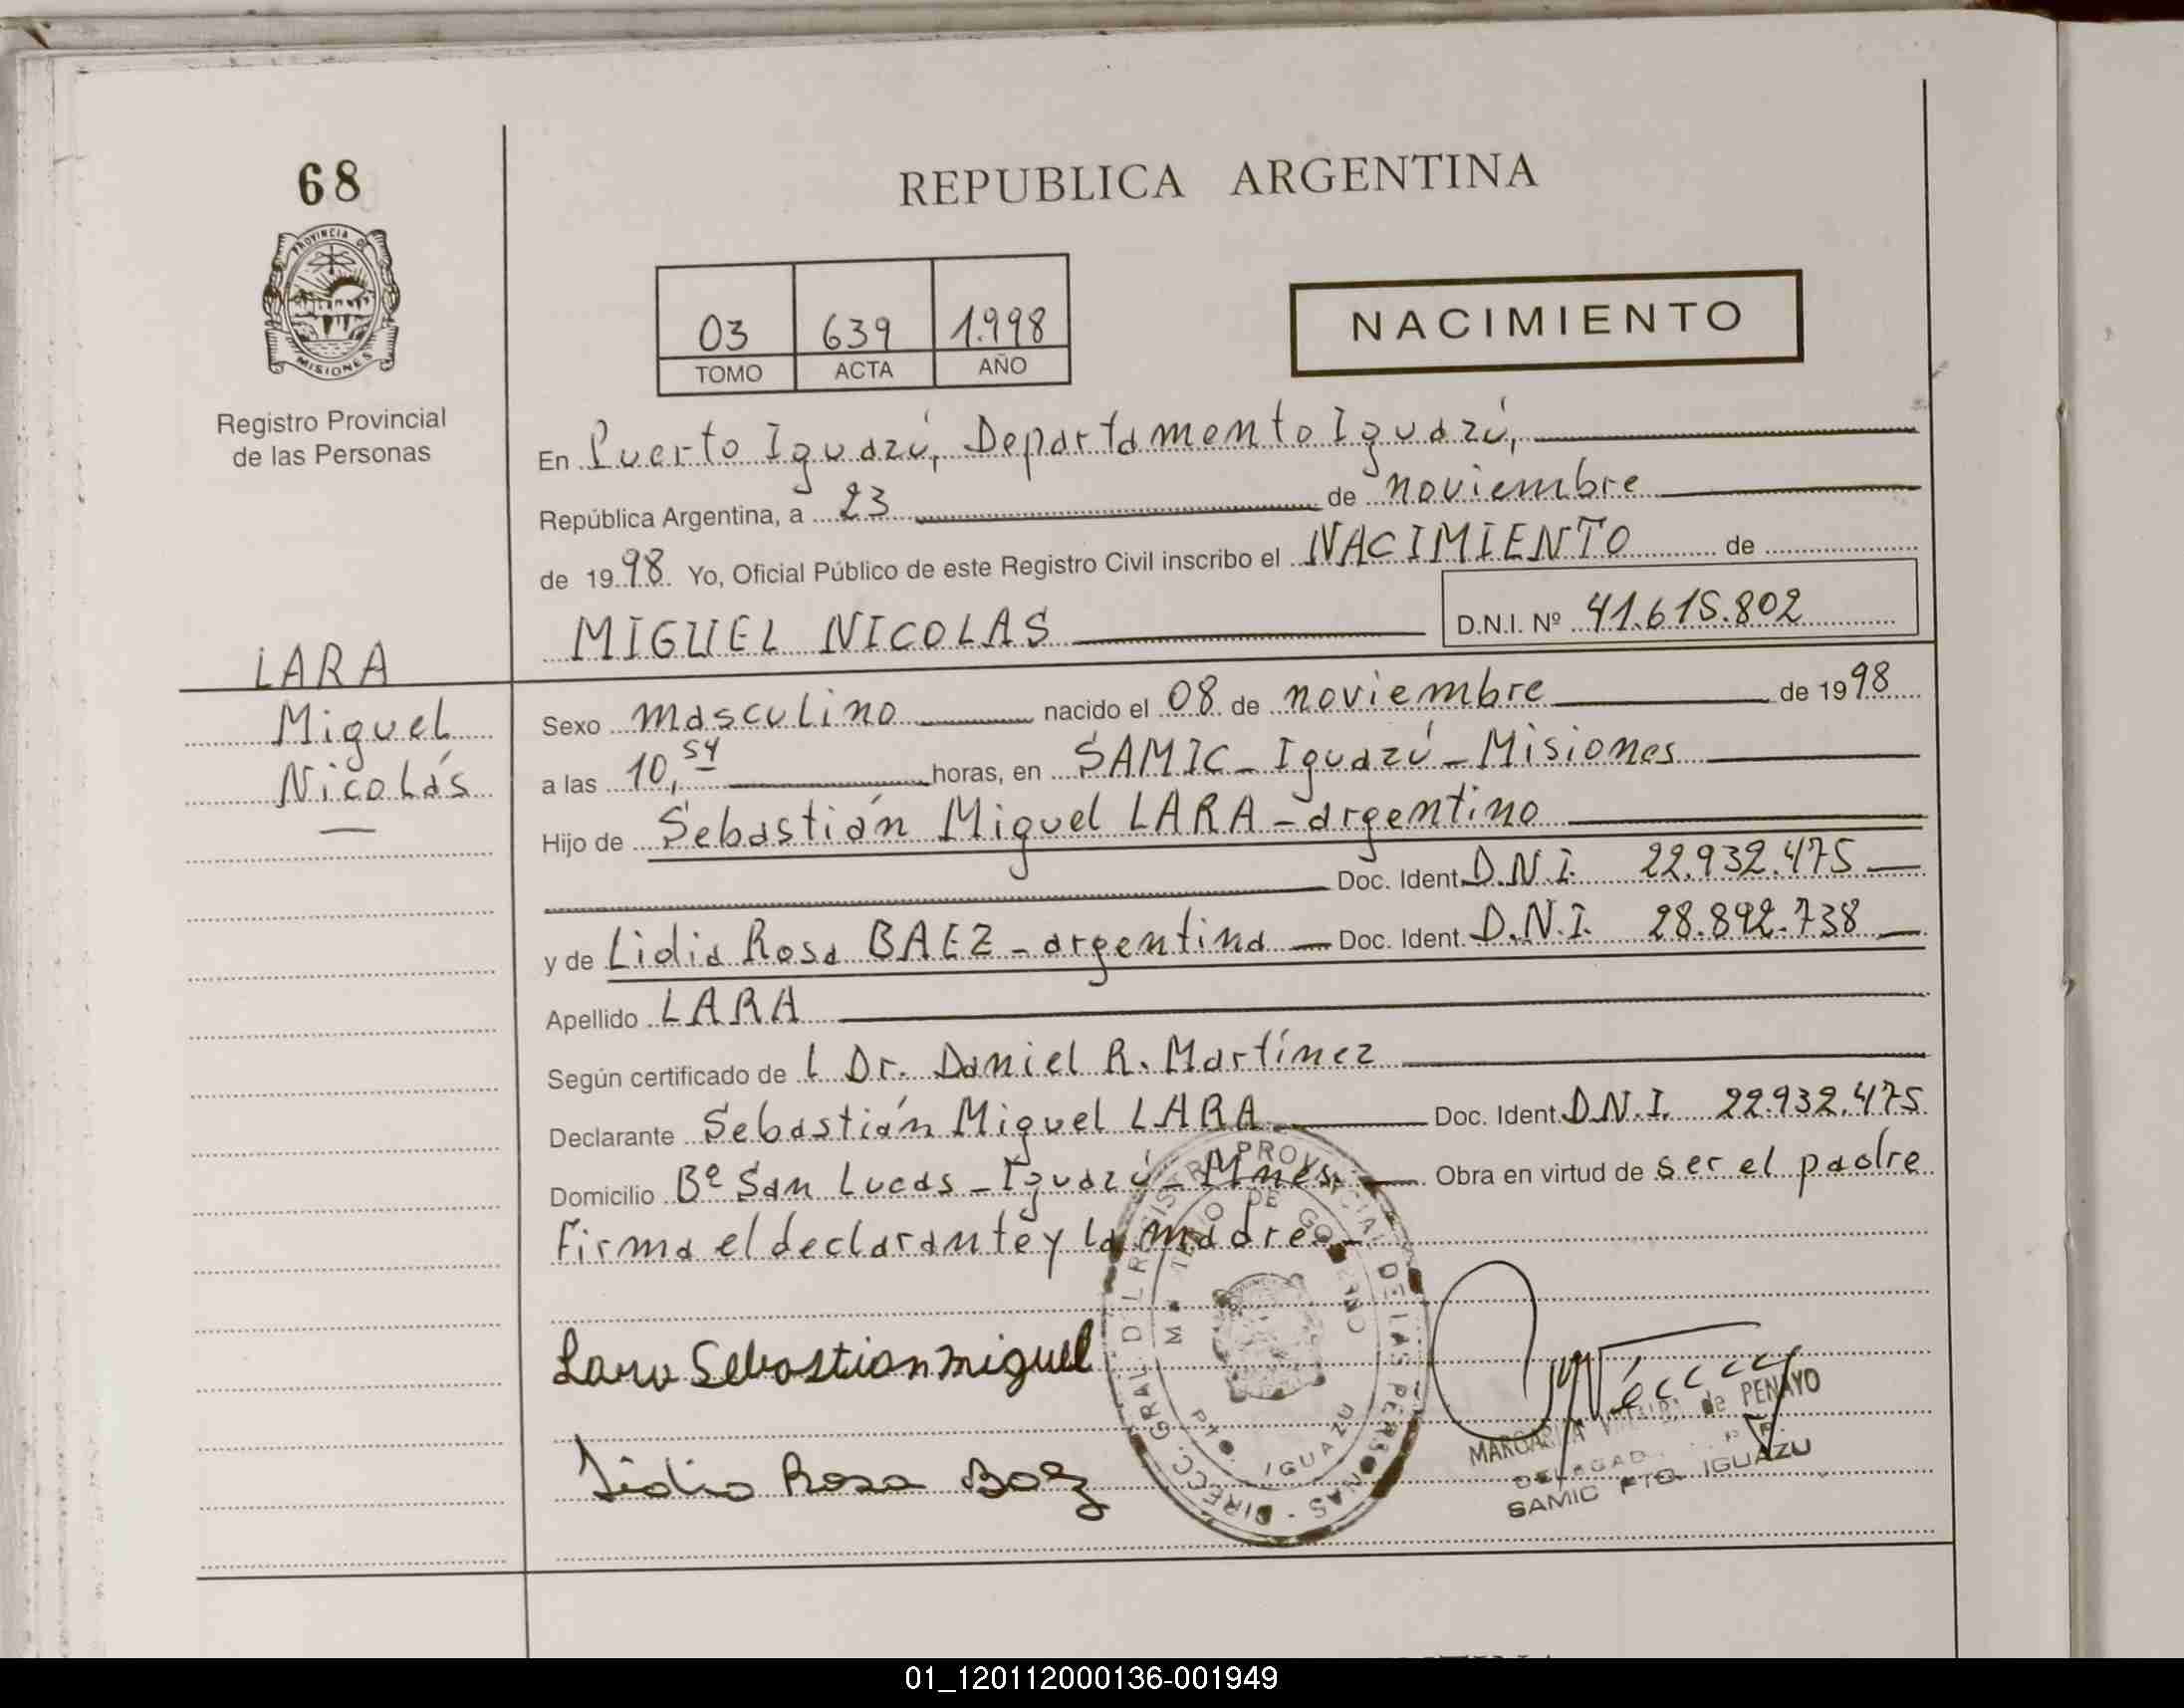 68
PROVINCIA DE
MISIONES
Registro Provincial
de las Personas
REPUBLICA ARGENTINA
03 639 1.998
TOMO ACTA AÑO
NACIMIENTO
En Puerto Iguazú, Departamento Iguazú,
República Argentina, a 23 de noviembre
de 1998 Yo, Oficial Público de este Registro Civil inscribo el NACIMIENTO de
MIGUEL NICOLAS D.N.I. Nº 41.615.802
LARA
Miguel
Nicolás
Sexo masculino nacido el 08 de noviembre de 1998
a las 10,54 horas, en SAMIC - Iguazú - Misiones
Hijo de Sebastián Miguel LARA - argentino
Doc. Ident. D.N.I. 22.932.475
y de Lidia Rosa BAEZ - argentina Doc. Ident. D.N.I. 28.892.738
Apellido LARA
Según certificado de l Dr. Daniel R. Martínez
Declarante Sebastián Miguel LARA Doc. Ident. D.N.I. 22.932.475
Domicilio Bº San Lucas - Iguazú - Mnes. Obra en virtud de ser el padre
Firma el declarante y la madre.-
Lara Sebastian miguel
Lidia Rosa Baez
DIRECC. GRAL. DEL REGISTRO PROVINCIAL DE LAS PERSONAS
DE GOBIERNO
PTO. IGUAZU
MARGARITA de PENAYO
SAMIC PTO. IGUAZU
01_120112000136-001949